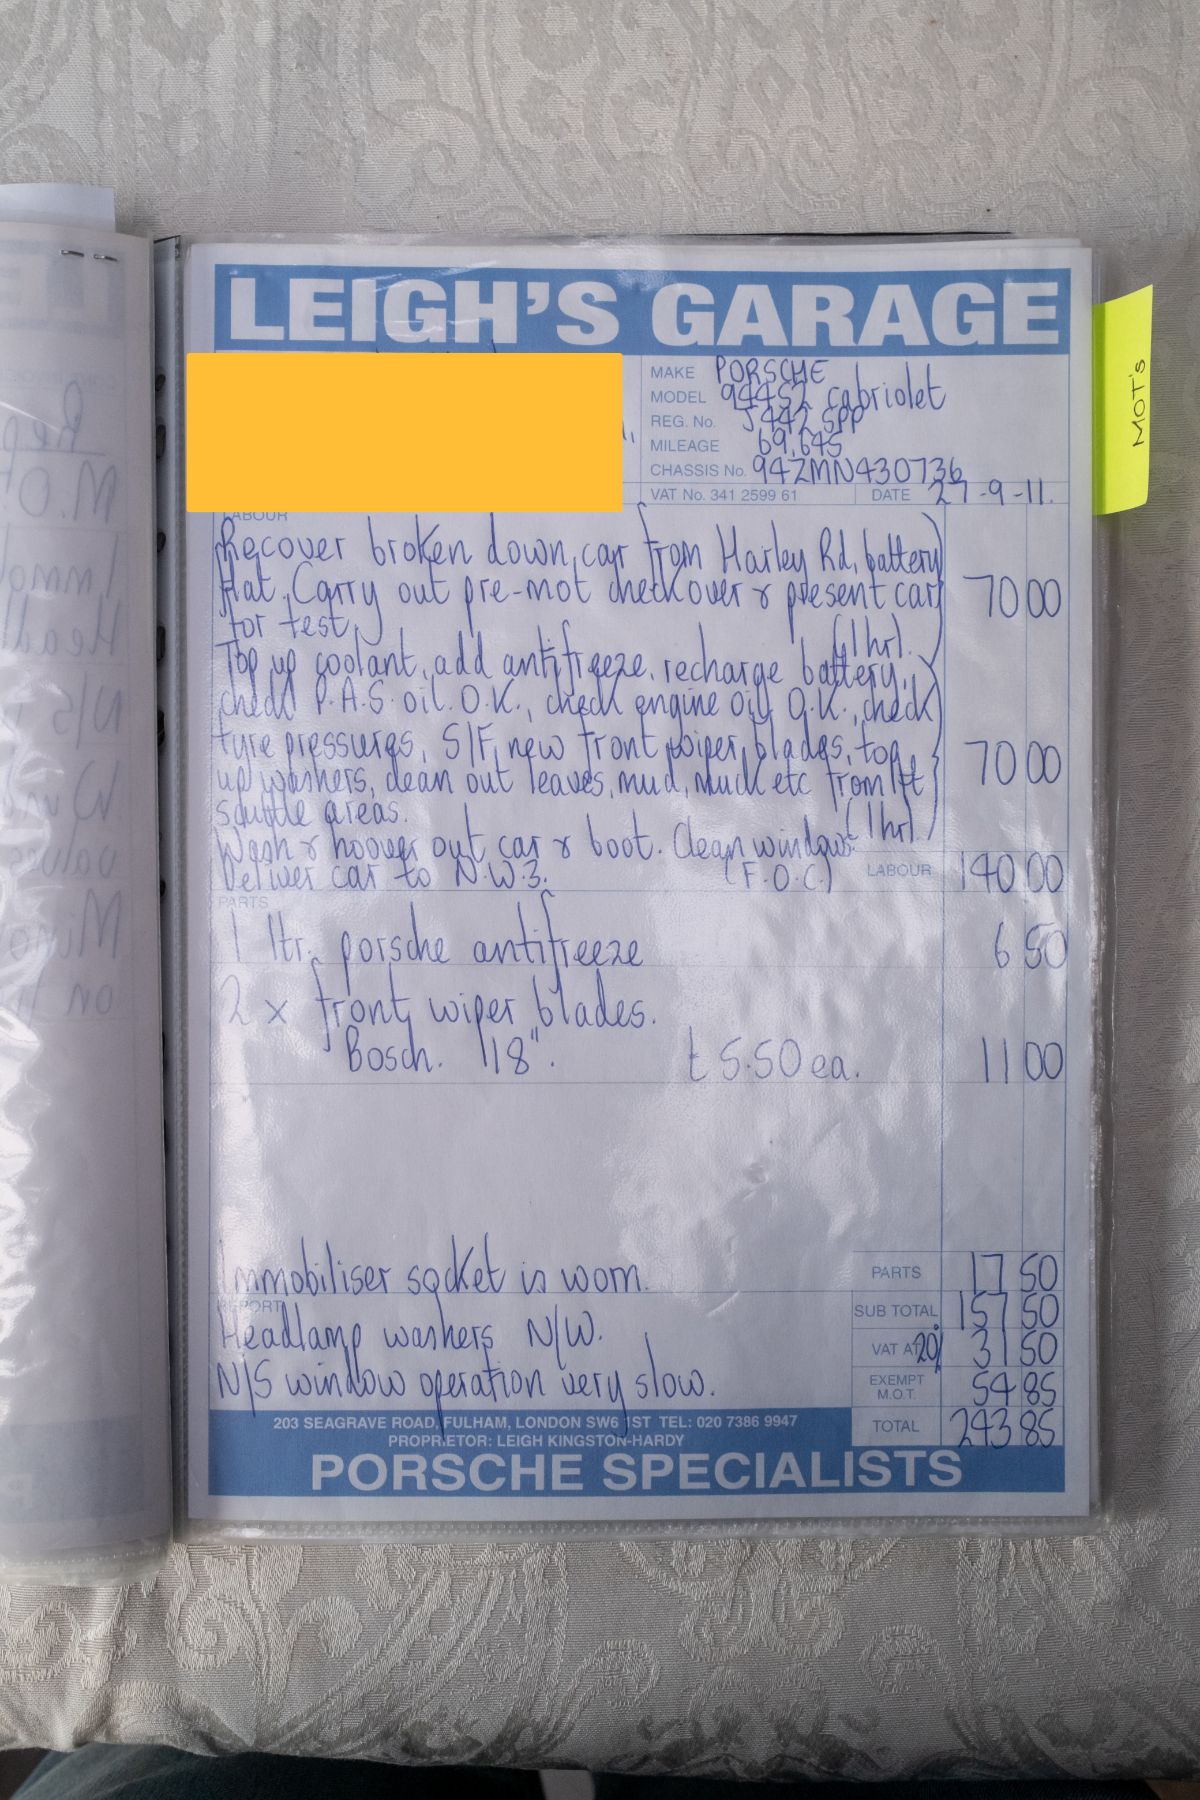 LEIGH'S GARAGE
MAKE PORSCHE
MODEL 944S2 cabriolet
REG. No. J442 SPP
MILEAGE 69,645
CHASSIS No. 94ZMN430736
VAT No. 341 2599 61 DATE 27-9-11.
MOT's
LABOUR
Recover broken down car from Harley Rd, battery
flat. Carry out pre-mot checkover & present car 70 00
for test. (1hr).
Top up coolant, add antifreeze, recharge battery,
check P.A.S. oil O.K., check engine oil O.K., check
tyre pressures, S/F, new front wiper blades, top 70 00
up washers, clean out leaves, mud, muck etc from ft
scuttle areas. (1hr).
Wash & hoover out car & boot. Clean windows.
Deliver car to N.W.3. (F.O.C.) LABOUR 140 00
PARTS
1 ltr. porsche antifreeze 6 50
2 x front wiper blades.
Bosch. 18". £5.50 ea. 11 00
Immobiliser socket is worn. PARTS 17 50
REPORT SUB TOTAL 157 50
Headlamp washers N/W. VAT AT 20% 31 50
N/S window operation very slow. EXEMPT M.O.T. 54 85
TOTAL 243 85
203 SEAGRAVE ROAD, FULHAM, LONDON SW6 1ST TEL: 020 7386 9947
PROPRIETOR: LEIGH KINGSTON-HARDY
PORSCHE SPECIALISTS